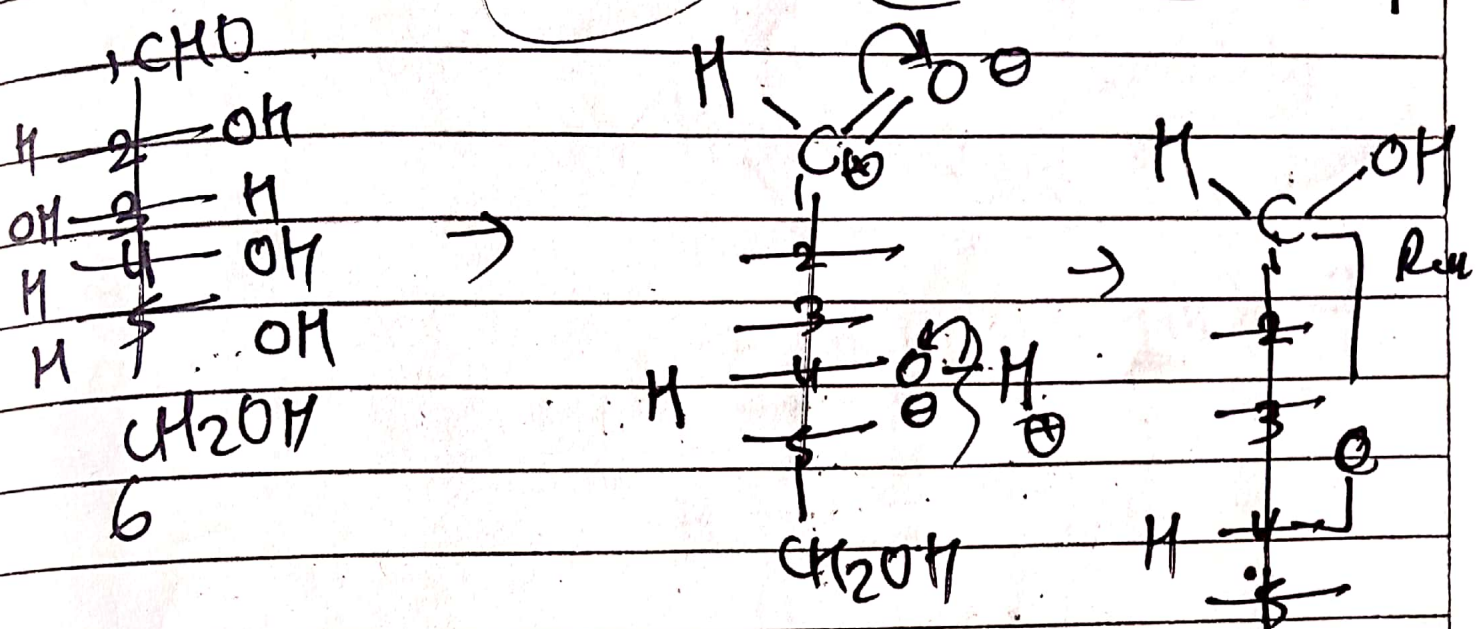 1 CHO
H 2 OH
OH 3 H
H 4 OH
H 5 OH
CH2OH
6
→
H O ⊖
C ⊕
1
2
3
H 4 O H
⊖ ⊕
5
CH2OH
→
H OH
C
1
2
3
O
H 4
5